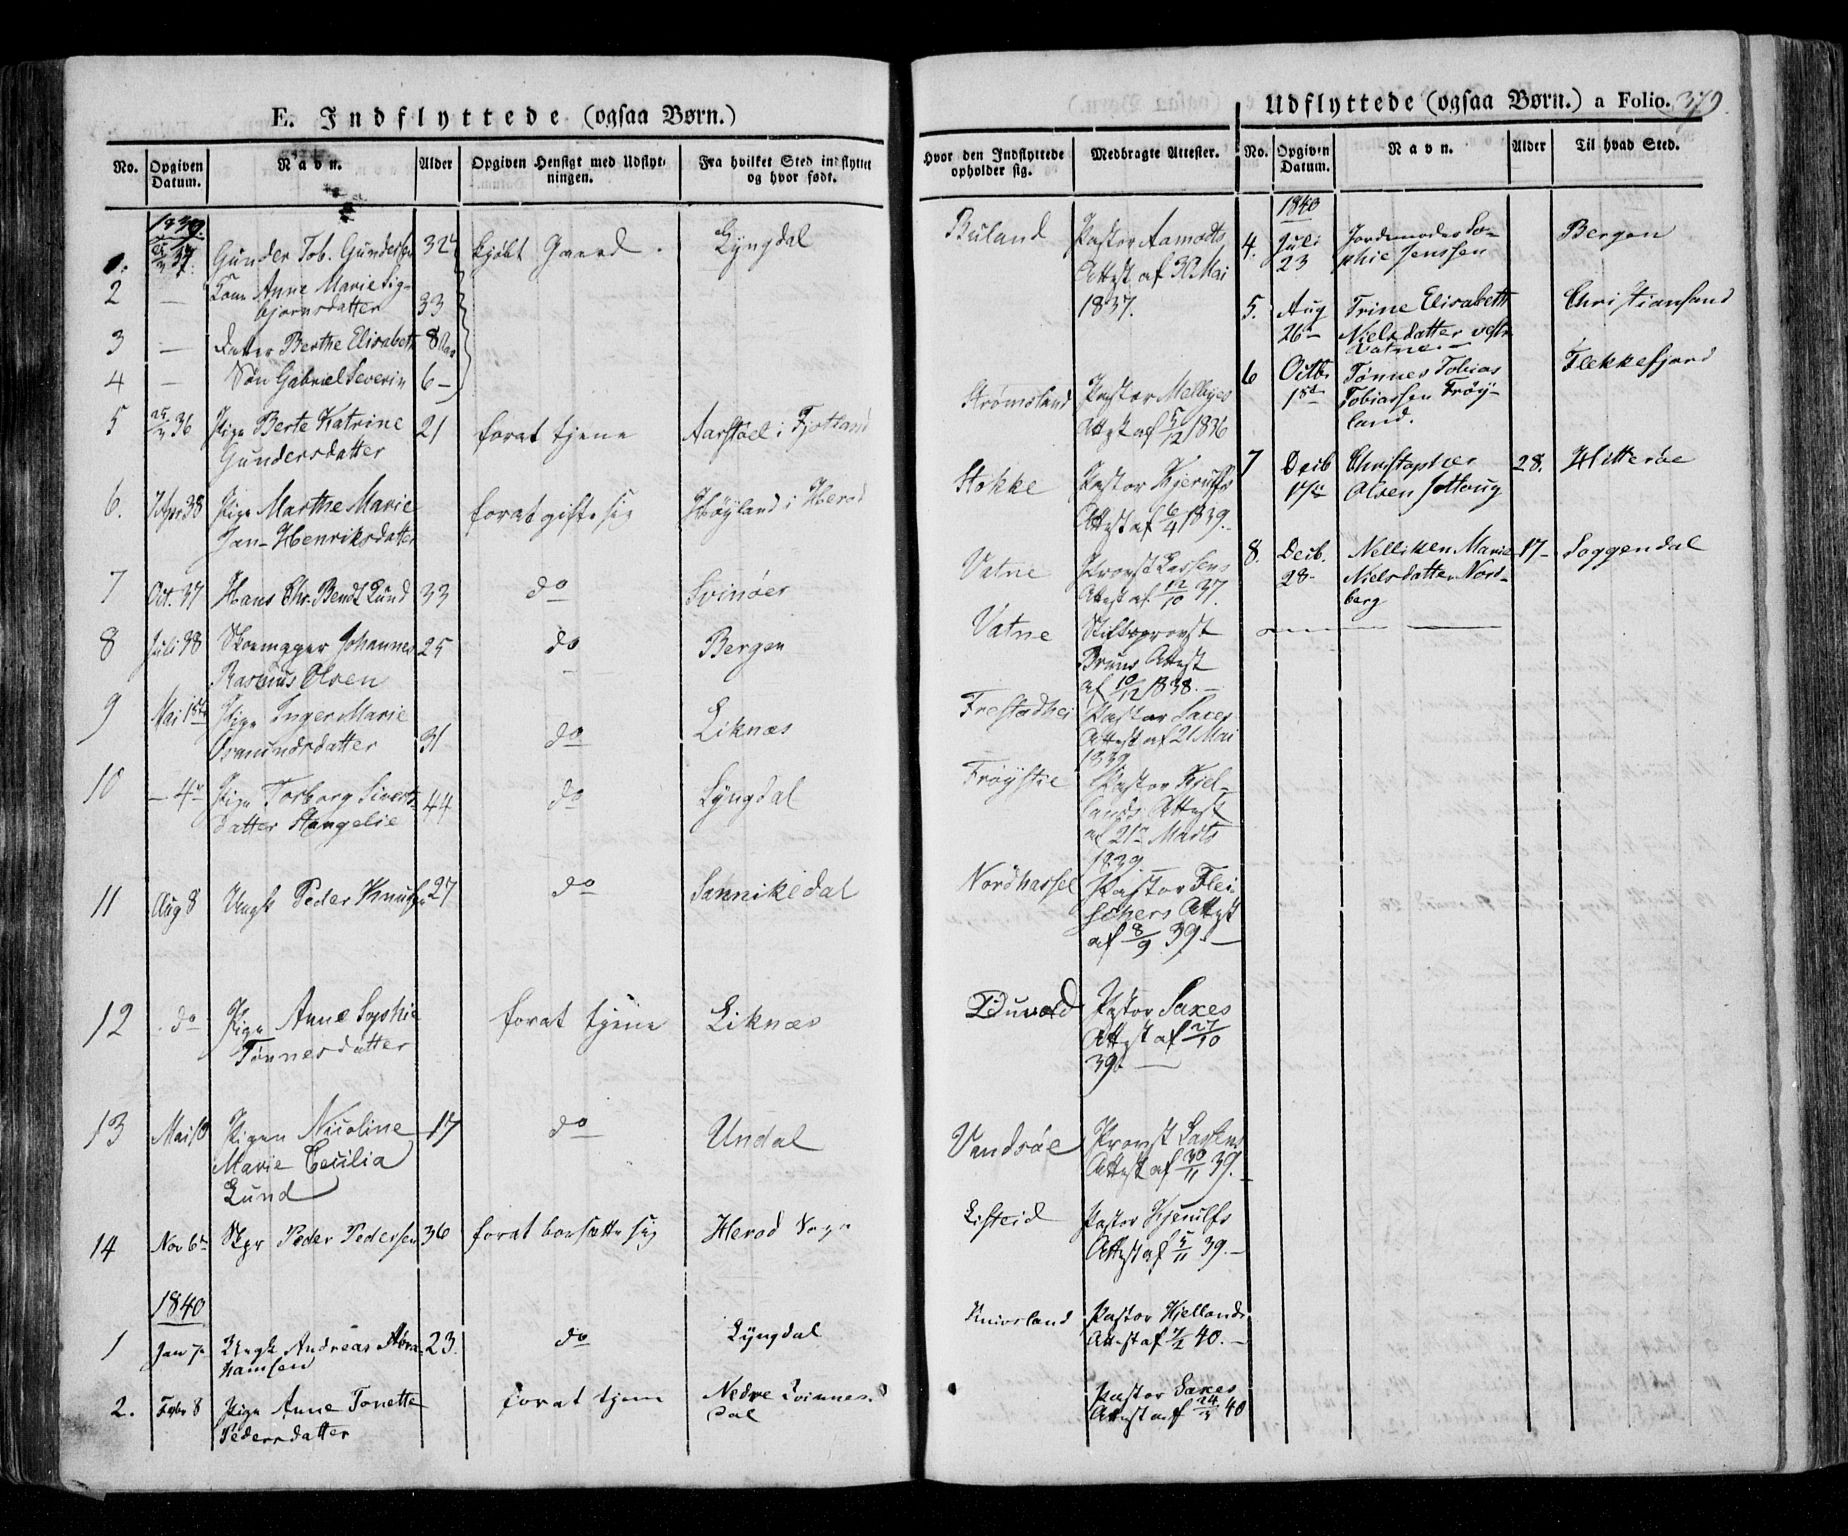 E. Indflyttede (ogsaa Børn.)
No.
Opgiven Datum.
Navn.
Alder
Opgiven Hensigt med Udflyt-
ningen.
Fra hvilket Sted indflyttet
og hvor født.
1839.
Gunder Tob. Gundersen 32 kjøbt Gaard. Lyngdal
2 — Kone Anne Marie Sig-
bjørnsdatter 33
3 — Datter Berthe Elisabeth 8 Aar
4 — Søn Gabriel Severin 6 —
5 36 Pige Berte Katrine 21 forat tjene Aarstoel i Fjotland
Gundersdatter
6. 38 Pige Marthe Marie forat gifte sig Høyland i Herod
Jan-Henriksdatter
7 Oct. 37 Hans Chr. Bendt Lund 33 do Svinøer
8 Juli 38 Skoemager Johannes 25 do Bergen
Rasmus Olsen
9 Mai Pige Inger Marie
Osmundsdatter 31 do Liknæs
10 — 4de Pige Torborg Siverts- 44 do Lyngdal
datter Hangelie
11 Aug 8 Ungk Peder Knudsen 27 do Sannikedal
12 do Pige Anne Sophie forat tjene Liknæs
Tønnesdatter
13 Mai 10 Pigen Nicoline 17 do Undal
Marie Cecilia
Lund
14 Nov 6te Peder Pedersen 36 forat bosætte sig Herod Sogn
1840
1 Jan 7 Ungk Andreas Abra- 23. do Lyngdal
hamsen
2. Febr 8 Pige Anne Tonette forat tjene Nedre Qvinnes-
Pedersdatter dal
Hvor den Indflyttede
opholder sig.
Medbragte Attester.
Buland Pastor Aamodts
Attest af 30 Mai
1837.
Strømsland Pastor Melbyes
Attest af 5/12 1836
Stokke Pastor Kjerulfs
Attest af 6/4 1839.
Vatne Provst Lassens
Attest af 12/10 37.
Vatne Stiftsprovst
Bruns Attest
af 10/12 1838. —
Frestadhei Pastor Saxes
Attest af 21 Mai
1839
Frøystie Pastor Kjel-
lands Attest
af 21de Marts
1839
Nordhassel Pastor Flei-
schers Attest
af 8/9 39. —
Pastor Saxes
Attest af 27/10
39. —
Vandsøe Provst Lassens
Attest af 30/11 39.
Listeid Pastor Kjerulfs
Attest af 5/11 39. —
Knivsland Pastor Kjellands
Attest af 7/2 40. —
Pastor Saxes
Attest af 24/3 40
Udflyttede (ogsaa Børn.) a Folio. 379.
No.
Opgiven
Datum.
Navn.
Alder
Til hvad Sted.
1840
4. Juli Jordemoder So- Bergen
23 phie Jenssen
5. Aug Trine Elisabeth Christiansand
26 — Nielsdatter vestre
Vatne. —
6 Octb. Tønnes Tobias Flekkefjord
18de Tobiassen Frøy-
land.
7 Decb Christopher 28. Hitterøe
17de Olsen Jottoug
8. Decb. Nelliken Marie 17 — Soggendal
28 — Nielsdatter Nord-
berg